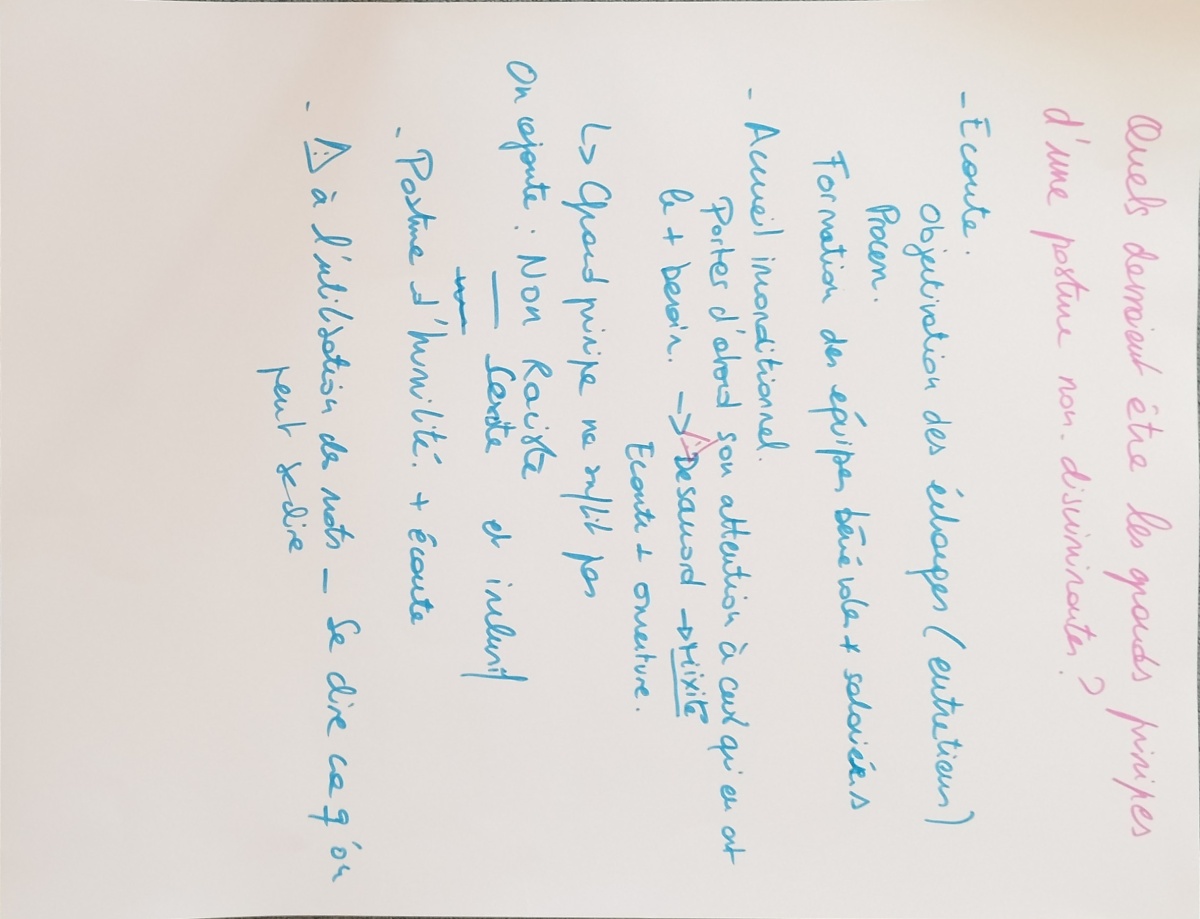 Quels devraient être les grands principes
d'une posture non-discriminantes ?
- Ecoute.
Objectivation des échanges (entretiens)
Formation des équipes bénévoles + salariées
- Accueil inconditionnel.
Porter d'abord son attention à ceux qu'en ont
le + besoin. -> Désaccord -> Mixité
Ecoute + ouverture.
L> Grand principe ne suffit pas
On ajoute : Non Raciste
— Sexiste et inclusif
- Posture d'humilité. + écoute
- ⚠ à l'utilisation de mots - Se dire ce q'on
peut se dire